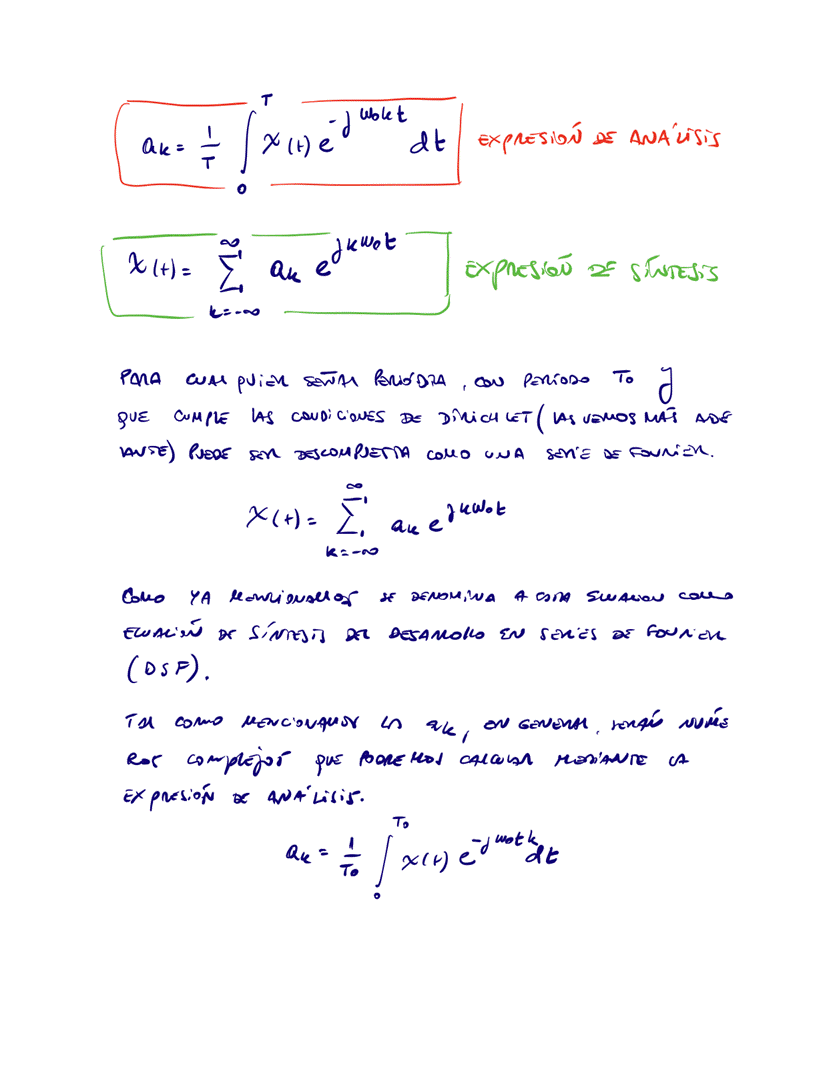 a_k = 1/T ∫_0^T x(t) e^{-j w_0 k t} dt EXPRESIÓN DE ANÁLISIS
x(t) = Σ_{k=-∞}^{∞} a_k e^{j k w_0 t} EXPRESIÓN DE SÍNTESIS
PARA CUALQUIER SEÑAL PERIÓDICA, CON PERÍODO T0 Y
QUE CUMPLE LAS CONDICIONES DE DIRICHLET (LAS VEMOS MÁS ADE
LANTE) PUEDE SER DESCOMPUESTA COMO UNA SERIE DE FOURIER.
x(t) = Σ_{k=-∞}^{∞} a_k e^{j k w_0 t}
COMO YA MENCIONAMOS SE DENOMINA A ESTA ECUACION COMO
ECUACIÓN DE SÍNTESIS DEL DESARROLLO EN SERIES DE FOURIER
(DSF).
TAL COMO MENCIONAMOS LOS a_k, EN GENERAL, SERÁN NÚME
ROS COMPLEJOS QUE PODREMOS CALCULAR MEDIANTE LA
EXPRESIÓN DE ANÁLISIS.
a_k = 1/T_0 ∫_0^{T_0} x(t) e^{-j w_0 t k} dt